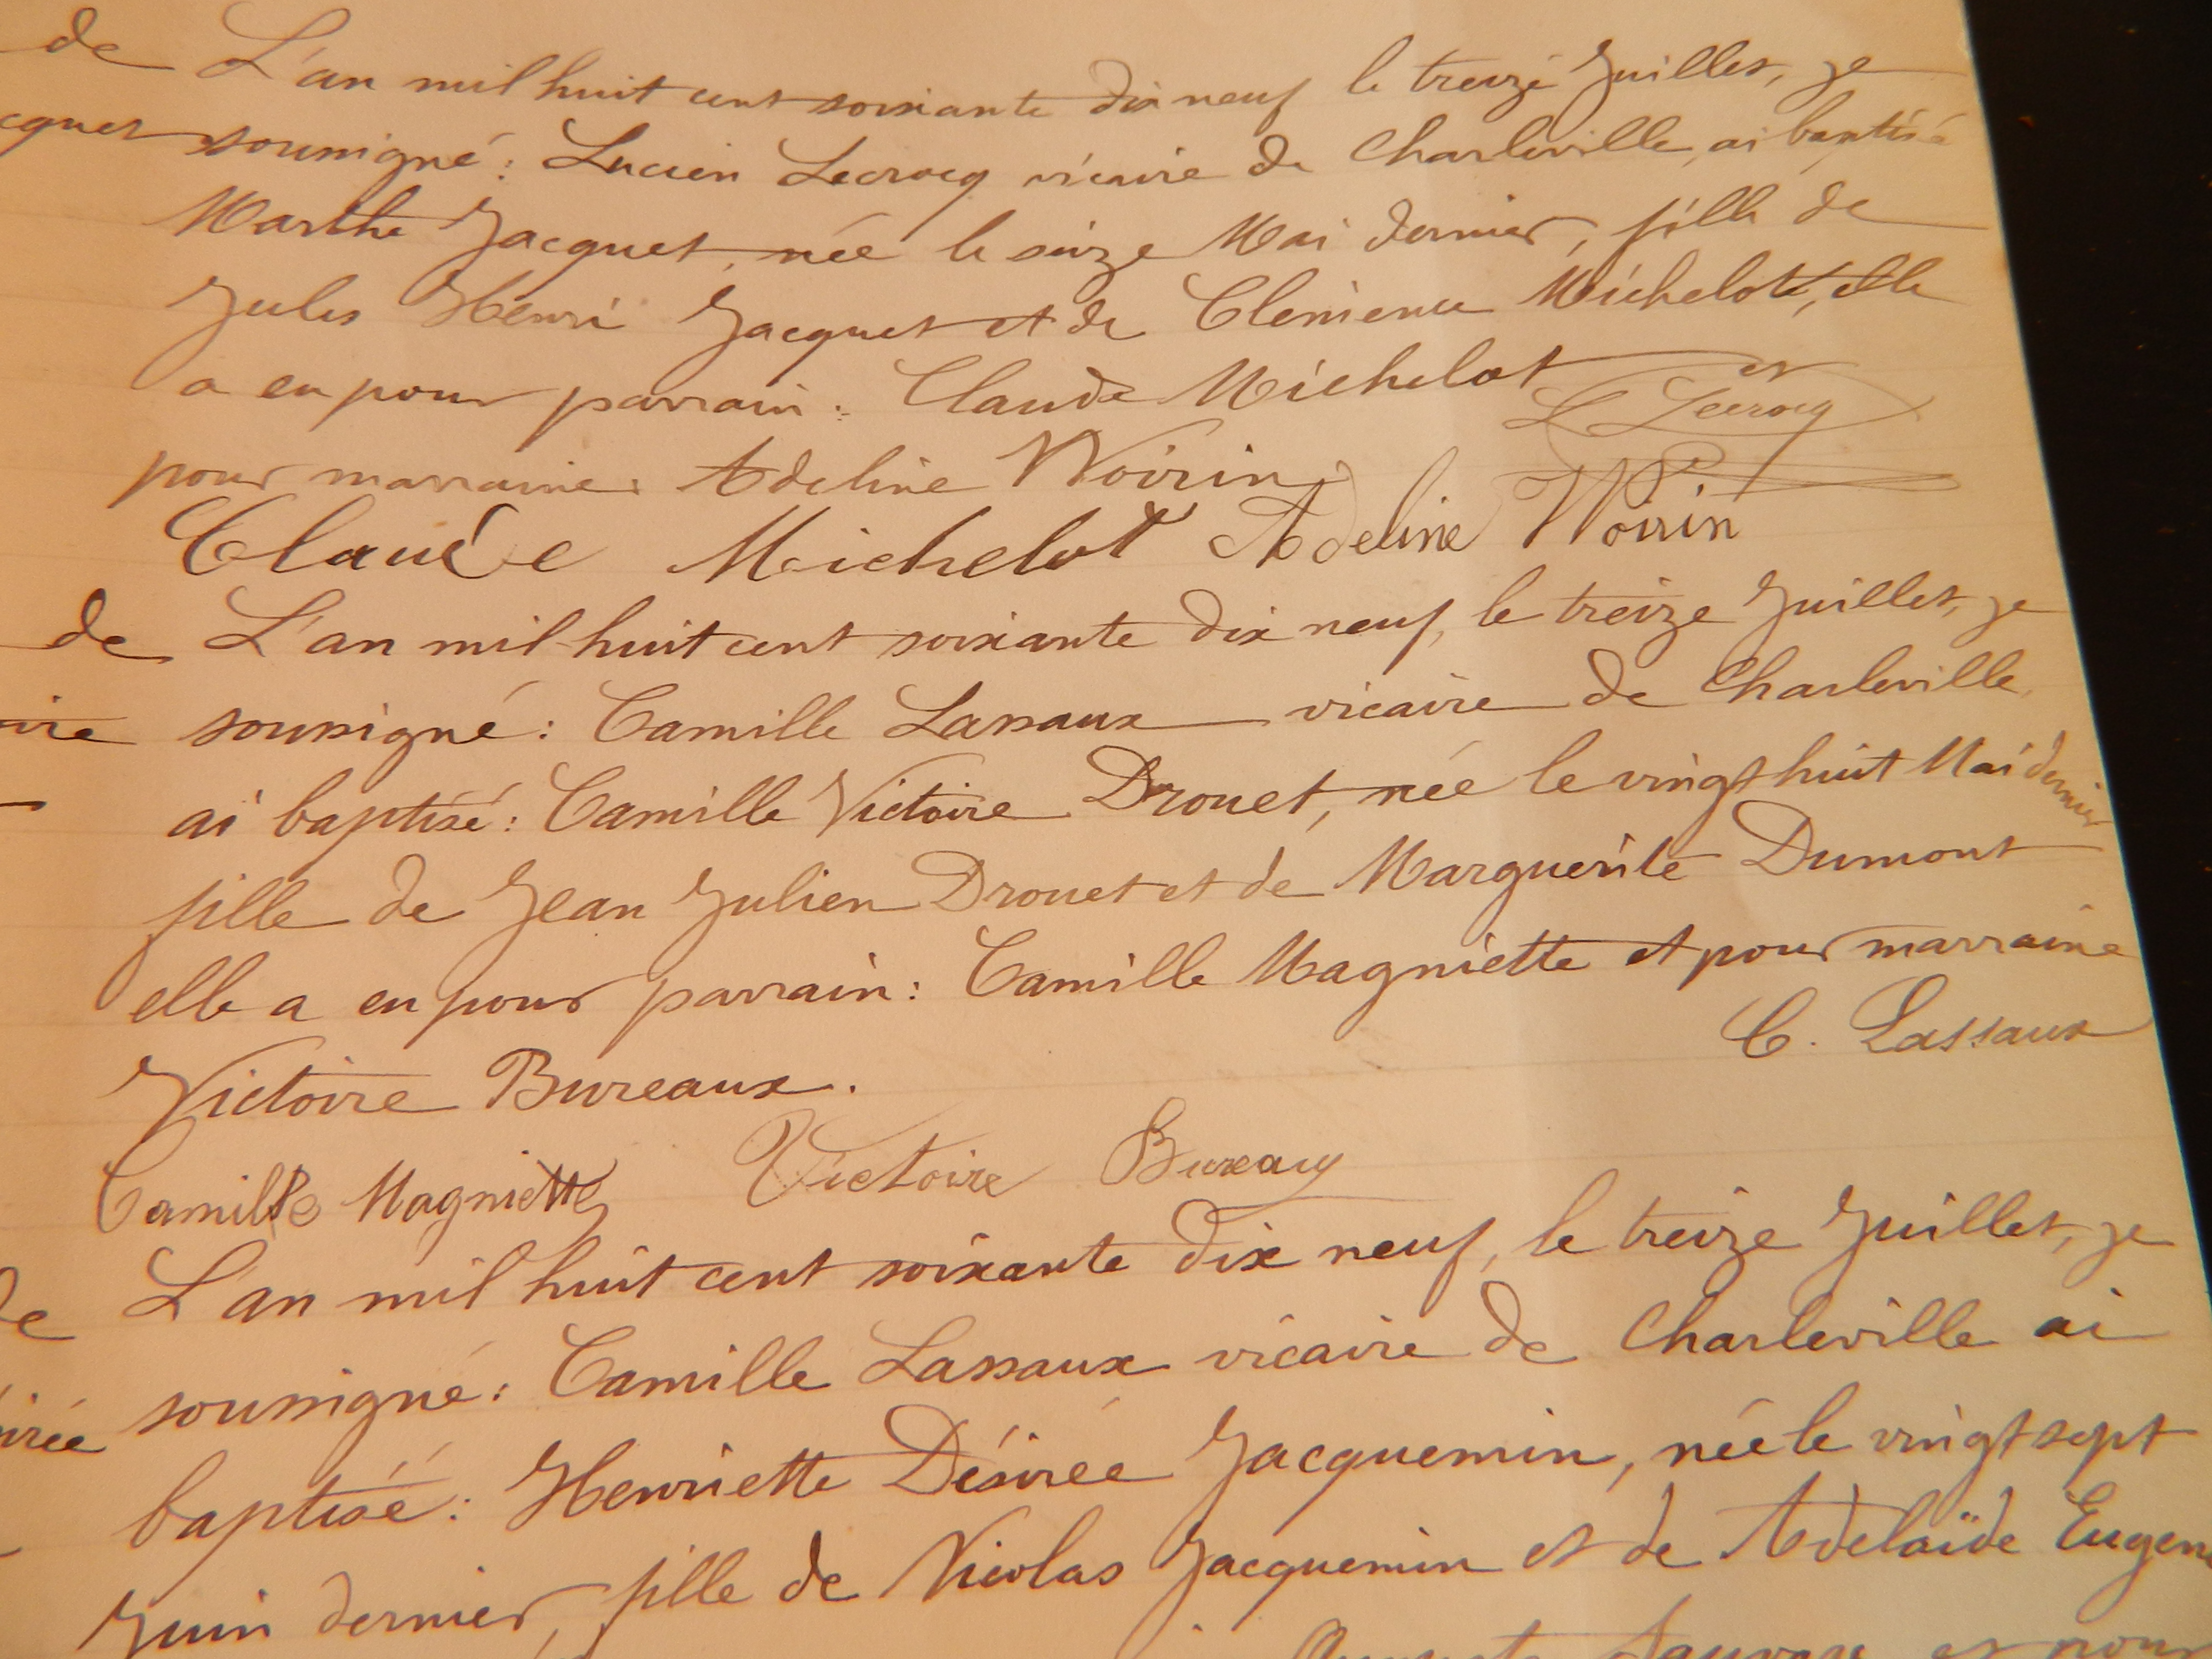 de L'an mil huit cent soixante dix neuf le treize Juillet, je
cquet soussigné : Lucien Lecrocq vicaire de Charleville, ai baptisé
Marthe Jacquet, née le seize Mai dernier, fille de
Jules Henri Jacquet et de Clémence Michelot, elle
a eu pour parrain : Claude Michelot et
L Lecrocq
pour marraine : Adeline Woirin
Claude Michelot Adeline Woirin
de L'an mil huit cent soixante dix neuf, le treize Juillet, je
ire soussigné : Camille Lassaux vicaire de Charleville,
ai baptisé : Camille Victoire Drouet, née le vingt huit Mai dernier
fille de Jean Julien Drouet et de Marguerite Dumont
elle a eu pour parrain : Camille Magniette et pour marraine
C. Lassaux
Victoire Bureaux.
Camille Magniette Victoire Bureaux
de L'an mil huit cent soixante dix neuf, le treize Juillet, je
irée soussigné : Camille Lassaux vicaire de Charleville ai
baptisé : Henriette Désirée Jacquemin, née le vingt sept
Juin dernier, fille de Nicolas Jacquemin et de Adelaïde Eugen
et pour